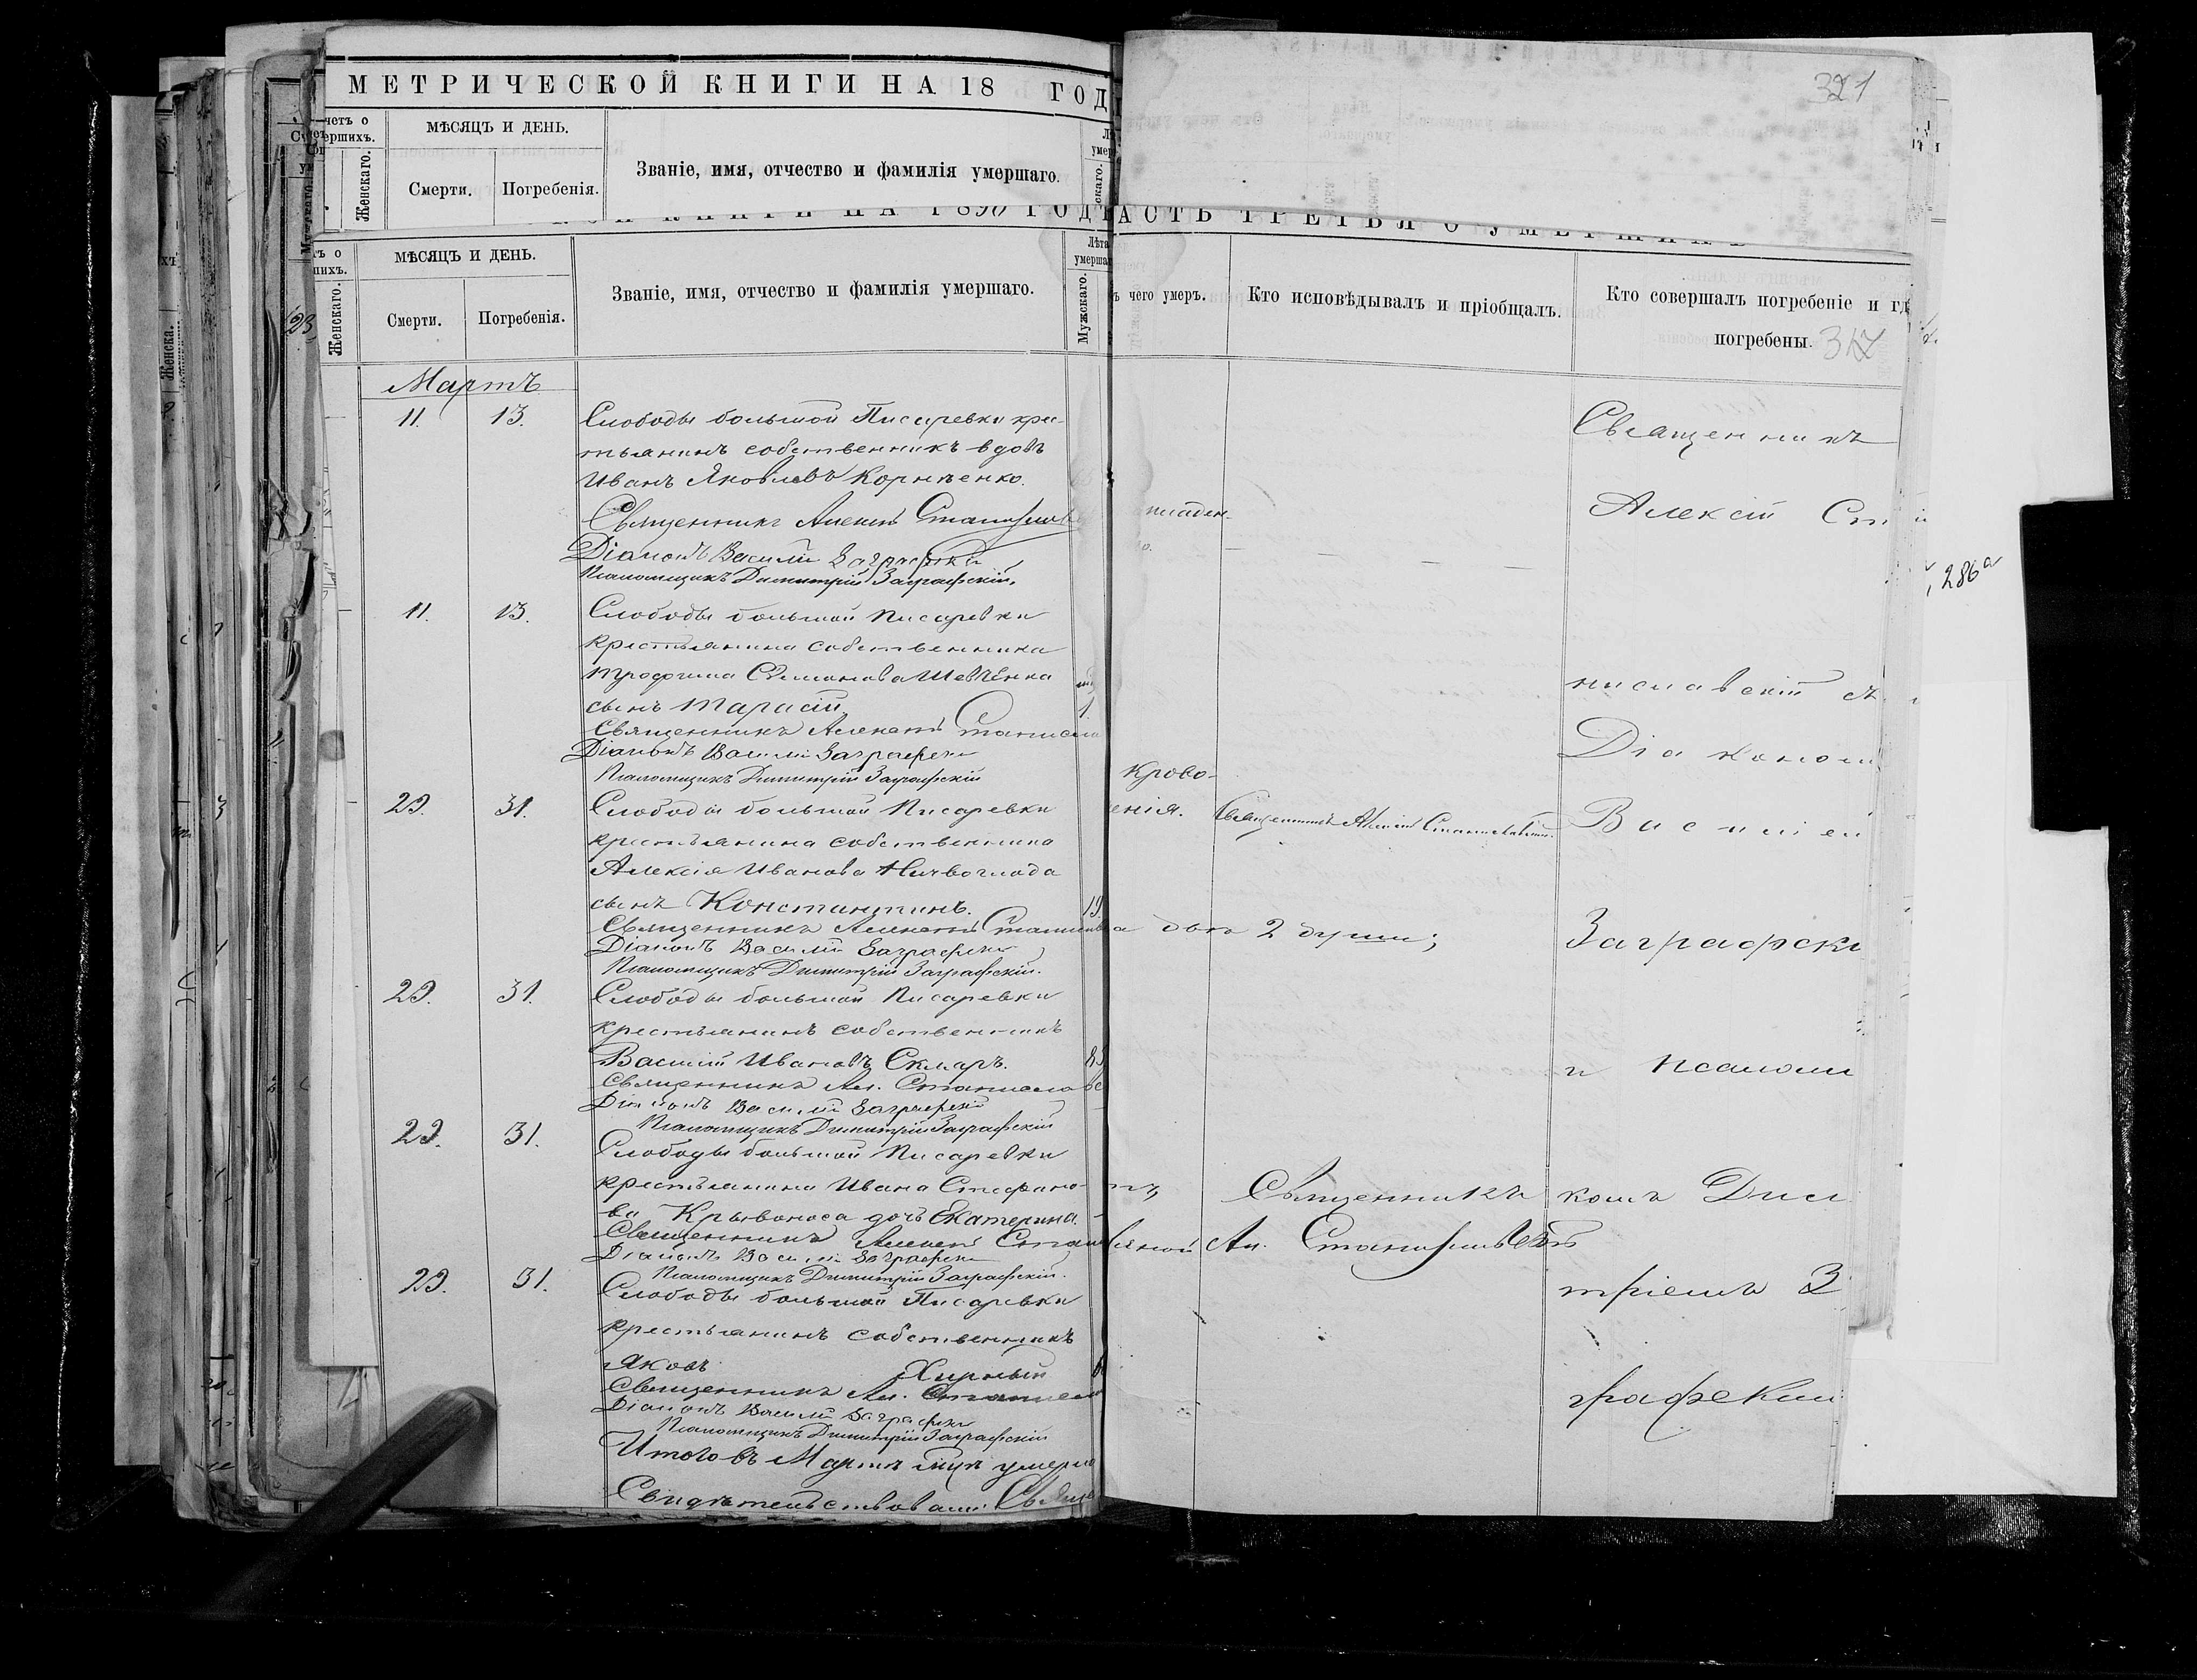 МЕТРИЧЕСКОЙ КНИГИ НА 18 ГОД
четъ о
ершихъ.
МѢСЯЦЪ И ДЕНЬ.
Званіе, имя, отчество и фамилія умершаго.
Женскаго.
Смерти.
Погребенія.
321
КНИГИ НА 1890 ГОДЪ
АСТЬ ТРЕТЬЯ О УМЕРШИХЪ
МѢСЯЦЪ И ДЕНЬ.
Званіе, имя, отчество и фамилія умершаго.
Лѣта
умерша
Женскаго.
Смерти.
Погребенія.
Мужскаго.
ъ чего умеръ.
Кто исповѣдывалъ и пріобщалъ.
Кто совершалъ погребеніе и гд
погребены.
Мартъ
11. 13. Слободы большой Писаревки кре-
стьянинъ собственникъ вдовъ
Иванъ Яковлевъ Корніенко.
Священникъ Алексій Станиславс
Діаконъ Василій Заграфскій
Псаломщикъ Димитрій Заграфскій.
11. 13. Слободы большой Писаревки
крестьянина собственника
Трофима Семионова Шевченка
сынъ Тарасій. 1.
Священникъ Алексій Станисла
Діаконъ Василій Заграфскій
Псаломщикъ Димитрій Заграфскій
29. 31. Слободы большой Писаревки
крестьянина собственника
Алексія Иванова
сынъ Константинъ. 19.
Священникъ Алексій Станисла
Діаконъ Василій Заграфскій
Псаломщикъ Димитрій Заграфскій.
29. 31. Слободы большой Писаревки
крестьянинъ собственникъ
Василій Ивановъ Скляръ.
Священникъ Ал. Станиславс
Діаконъ Василій Заграфскій
Псаломщикъ Димитрій Заграфскій
29. 31. Слободы большой Писаревки
крестьянина Ивана Стефано-
ва Кривоноса дочь Екатерина.
Священникъ Алексій Стани
Діаконъ Василій Заграфскій
Псаломщикъ Димитрій Заграфскій.
29. 31. Слободы большой Писаревки
крестьянинъ собственникъ
Яковъ Хирный
Священникъ Ал. Станисла
Діаконъ Василій Заграфскій
Псаломщикъ Димитрій Заграфскій
Итого въ Мартѣ м҃цѣ умерло
Свидѣтельствовали: Свяще
крово-
енія.
Священникъ Алексій Станиславскій.
два 2 души;
Священникъ
Ал. Станиславскій
Священникъ
Алексій Ст
ниславскій съ
Діаконом
Василіем
Заграфски
и псалом
комъ Дим
тріемъ З
графским
286а